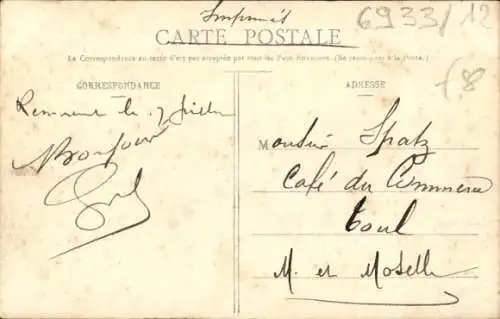 Imprimés
6933/12
CARTE POSTALE
La Correspondance au recto n'est pas acceptée par tous les Pays Étrangers. (Se renseigner à la Poste.)
CORRESPONDANCE
ADRESSE
f.8
le 7 juillet
Bonjour
Monsieur Spatz
Café du Commerce
Toul
M. et Moselle